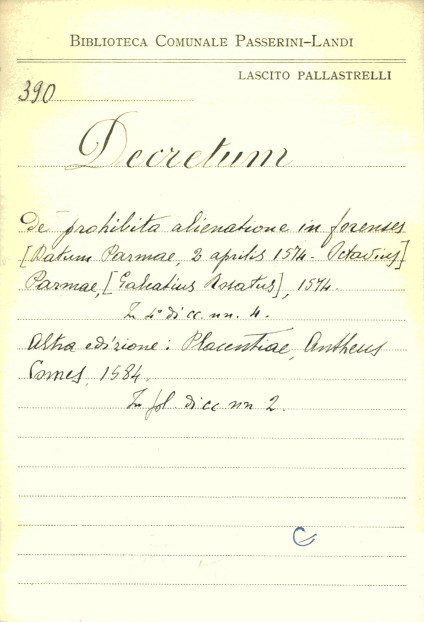 BIBLIOTECA COMUNALE PASSERINI-LANDI
LASCITO PALLASTRELLI
390
Decretum
De prohibita alienatione in forenses
[Datum Parmae, 2 aprilis 1574. Octavius]
Parmae, [Galeatius Rosatus], 1574.
In 4° di cc. nn. 4.
Altra edizione: Placentiae, Antheus
Comes, 1584.
In fol. di cc nn 2.
C